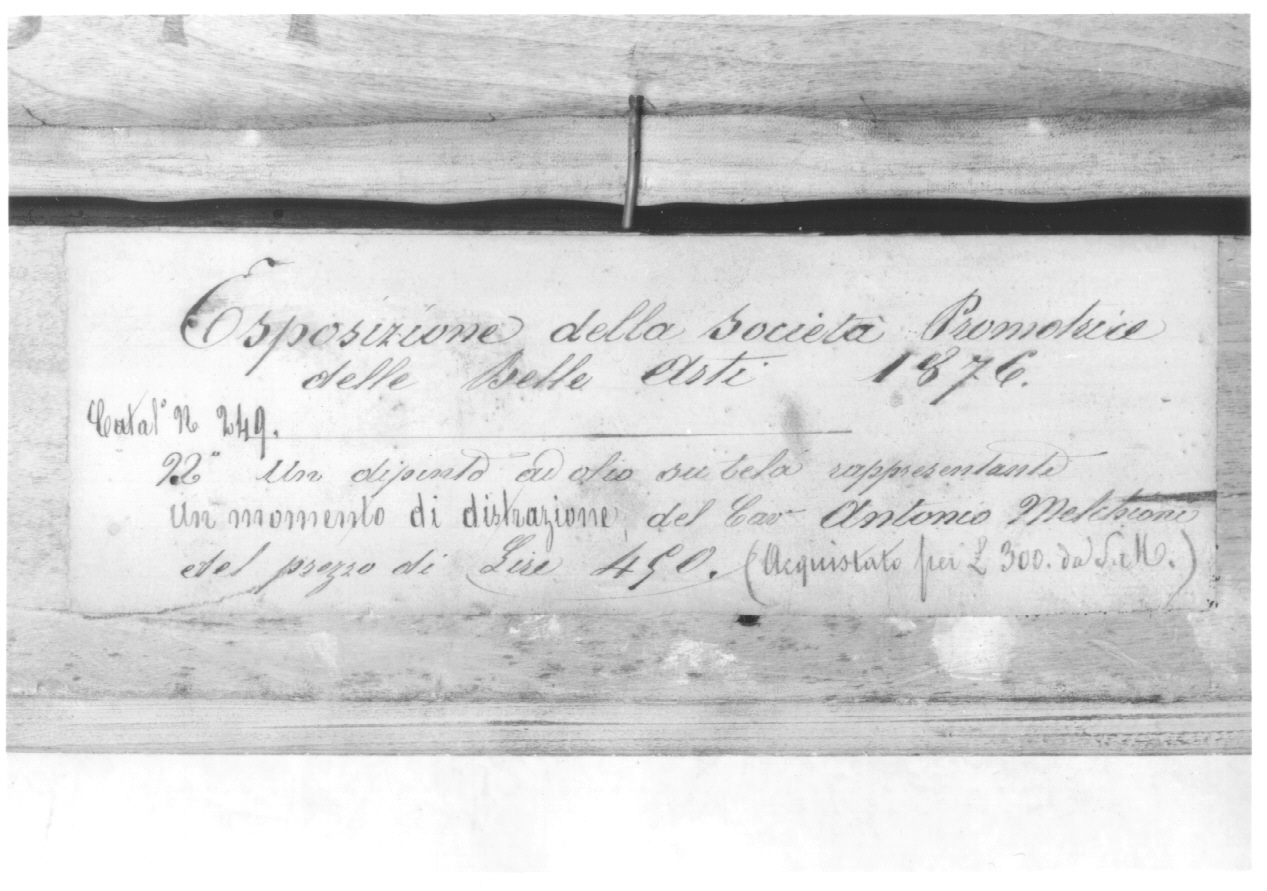 Esposizione della Società Promotrice
delle Belle Arti 1876.
Catal° N 249.
22° Un dipinto ad olio su tela rappresentante
un momento di distrazione, del Cav Antonio Melchioni
del prezzo di Lire 450. (Acquistato per £ 300. da S. M.)